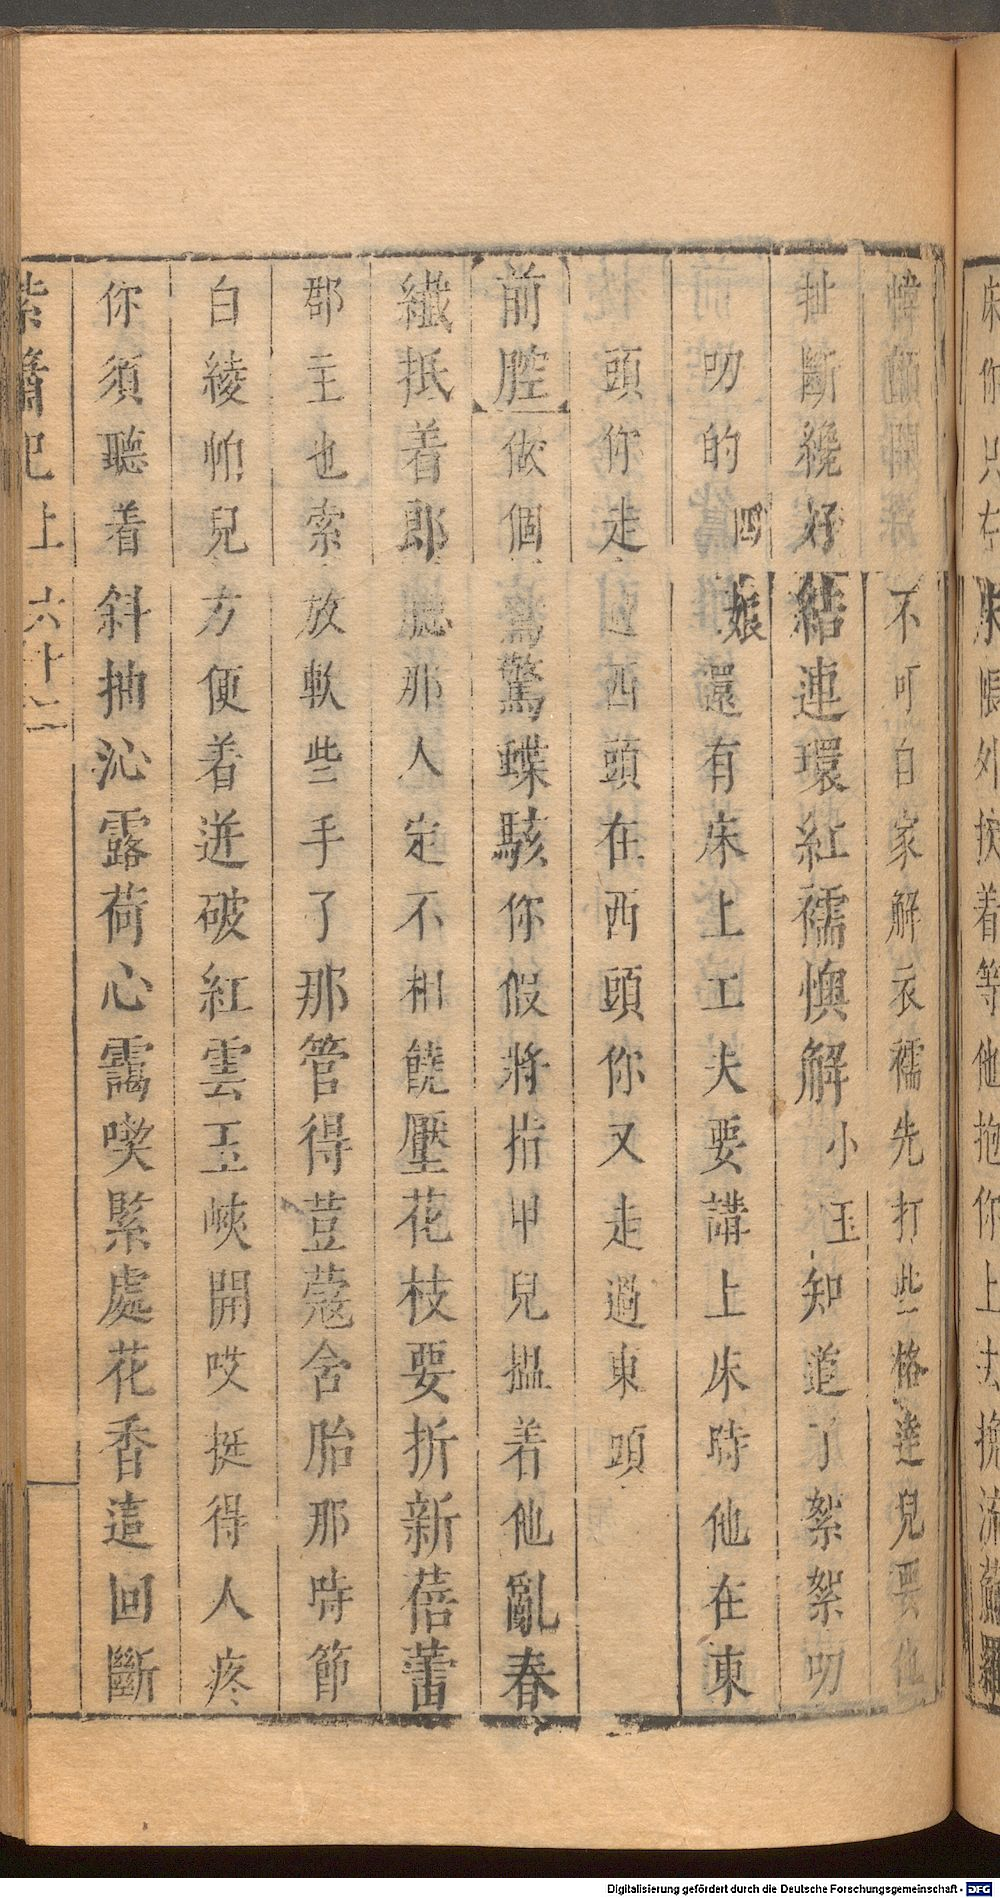 床你只在 床 帳外挨着等他抱你上去擁流蘇羅
幃 開 不可自家解衣襦先打些格達兒要他
扯斷纔好結連環紅襦懊解小玉知道了絮絮叨
叨的四娘還有床上工夫要講上床時他在東
頭你走過西頭在西頭你又走過東頭
前腔做個鶯驚蝶駭你假將指甲兒搵着他亂春
纖抵着郎聽那人定不相饒壓花枝要折新蓓蕾
郡主也索放軟些手了那管得荳蔻含胎那時節
白綾帕兒方便着迸破紅雲玉峽開哎挺得人疼
你須聽着斜抽沁露荷心靄喫緊處花香這回斷
紫簫記上 六十二
Digitalisierung gefördert durch die Deutsche Forschungsgemeinschaft - DFG